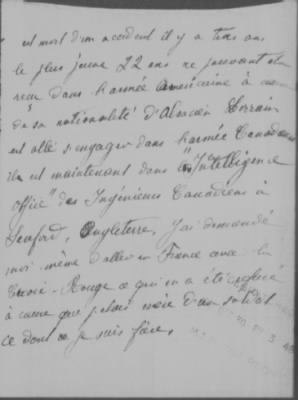 est mort d'un accident il y a trois ans
le plus jeune 22 ans ne pouvant être
reçu dans l'armée américaine à cause
de sa nationalité d'Alsacien Lorrain
est allé s'engager dans l'armée Canadienne
il est maintenant dans "Intelligence
office" des Ingénieurs Canadiens à
Seaford, Angleterre, J'ai demandé
moi même d'aller en France avec la
Croix-Rouge ce qui m'a été refusé
à cause que j'étais mère d'un soldat
ce dont je suis fière.